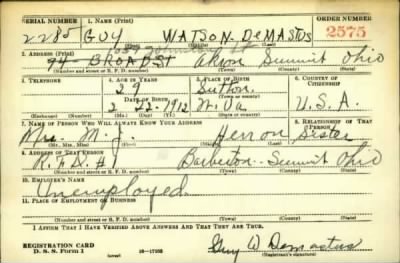 SERIAL NUMBER 1. NAME (Print) ORDER NUMBER
2285 GUY WATSON DEMASTUS 2575
(First) (Middle) (Last)
2. ADDRESS (Print)
94 BROAD ST Akron Summit Ohio
(Number and street or R. F. D. number) (Town) (County) (State)
3. TELEPHONE 4. AGE IN YEARS 5. PLACE OF BIRTH 6. COUNTRY OF CITIZENSHIP
29 Sutton
DATE OF BIRTH (Town or county)
2 1912 W. Va. U.S.A.
(Exchange) (No.) (Mo.) (Day) (Yr.) (State or country)
7. NAME OF PERSON WHO WILL ALWAYS KNOW YOUR ADDRESS 8. RELATIONSHIP OF THAT PERSON
Mrs. M. J. Herron Sister
(Mr., Mrs., Miss) (First) (Middle) (Last)
9. ADDRESS OF THAT PERSON
R.F.D. #1 Barberton Summit Ohio
(Number and street or R. F. D. number) (Town) (County) (State)
10. EMPLOYER'S NAME
Unemployed
11. PLACE OF EMPLOYMENT OR BUSINESS
(Number and street or R. F. D. number) (Town) (County) (State)
I AFFIRM THAT I HAVE VERIFIED ABOVE ANSWERS AND THAT THEY ARE TRUE.
REGISTRATION CARD
D. S. S. Form 1 16-17105 Guy W Demastus
(over) (Registrant's signature)